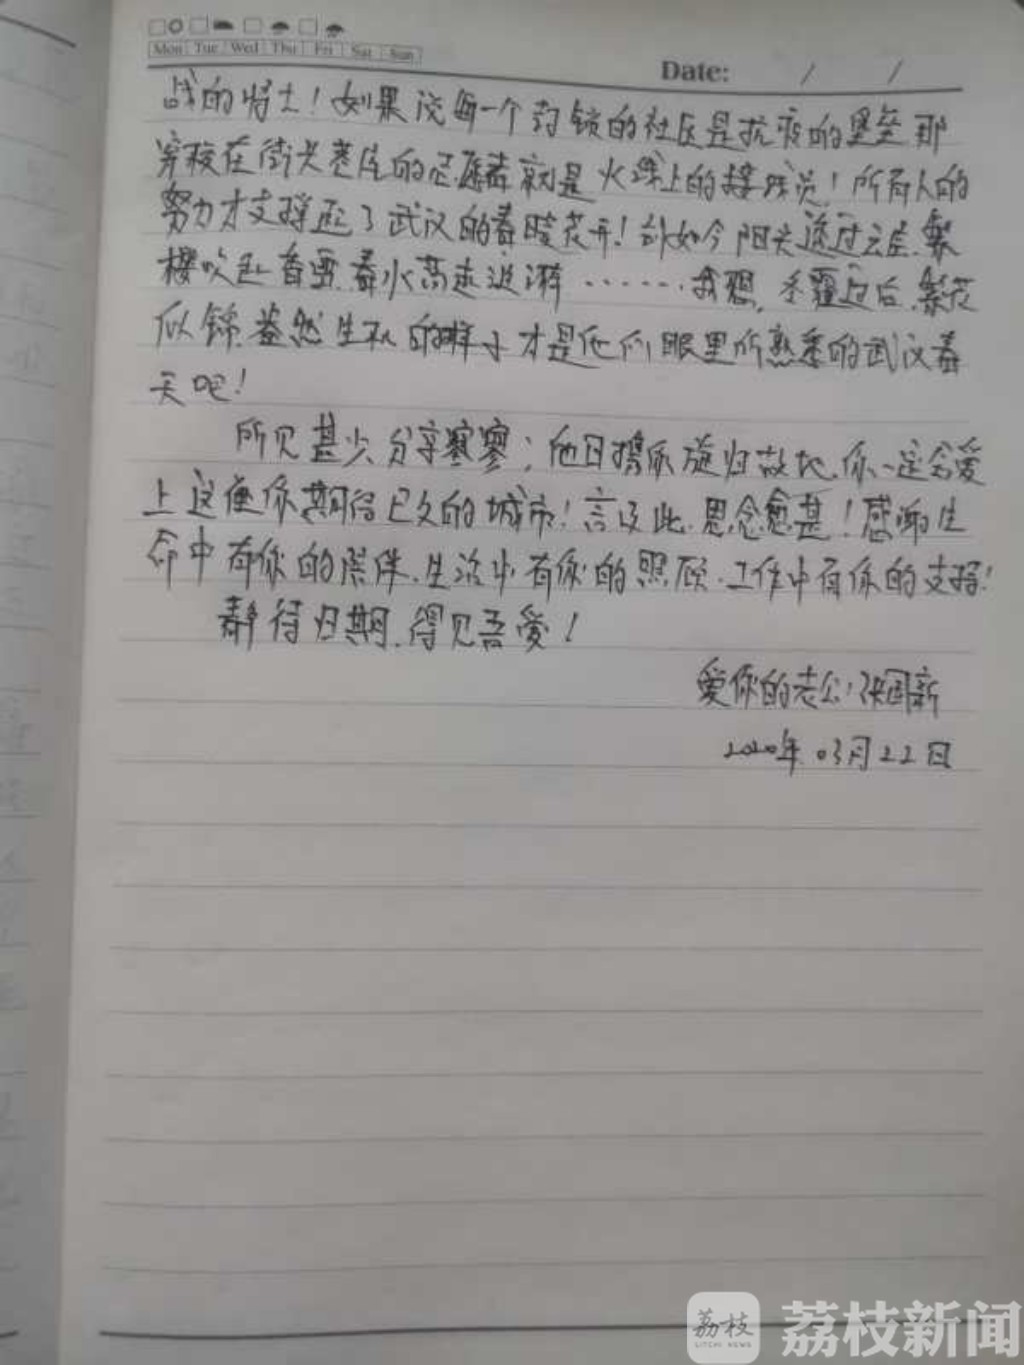 Mon Tue Wed Thu Fri Sat Sun
Date: / /
战的将士！如果说每一个封锁的社区是抗疫的堡垒 那
穿梭在街头巷尾的志愿者就是火线上的接球员！所有人的
努力才支撑起了武汉的春暖花开！就如今阳光透过云层.繁
樱吹起香雪.春水荡起涟漪……我想,冬霾过后.繁花
似锦.盎然生机的样子才是他们眼里所熟悉的武汉春
天吧！
所见甚少.分享寥寥；他日携你旋归故地.你一定会爱
上这座你期待已久的城市！言及此.思念愈甚！感谢生
命中有你的陪伴.生活中有你的照顾.工作中有你的支持！
静待归期.得见吾爱！
爱你的老公:张国新
2020年.03月22日
荔枝
LITCHI NEWS
荔枝新闻